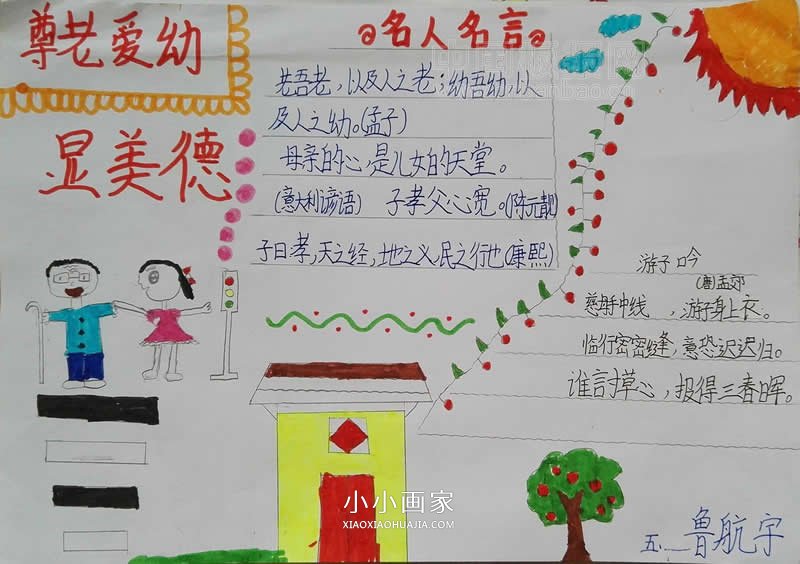 尊老爱幼
显美德
名人名言
老吾老，以及人之老；幼吾幼，以
及人之幼。(孟子)
母亲的心是儿女的天堂。
(意大利谚语) 子孝父心宽。(陈元靓)
子曰孝，天之经，地之义，民之行也(康熙)
游子吟
(唐)孟郊
慈母手中线，游子身上衣。
临行密密缝，意恐迟迟归。
谁言寸草心，报得三春晖。
小小画家
XIAOXIAOHUAJIA.COM
五 鲁航宇